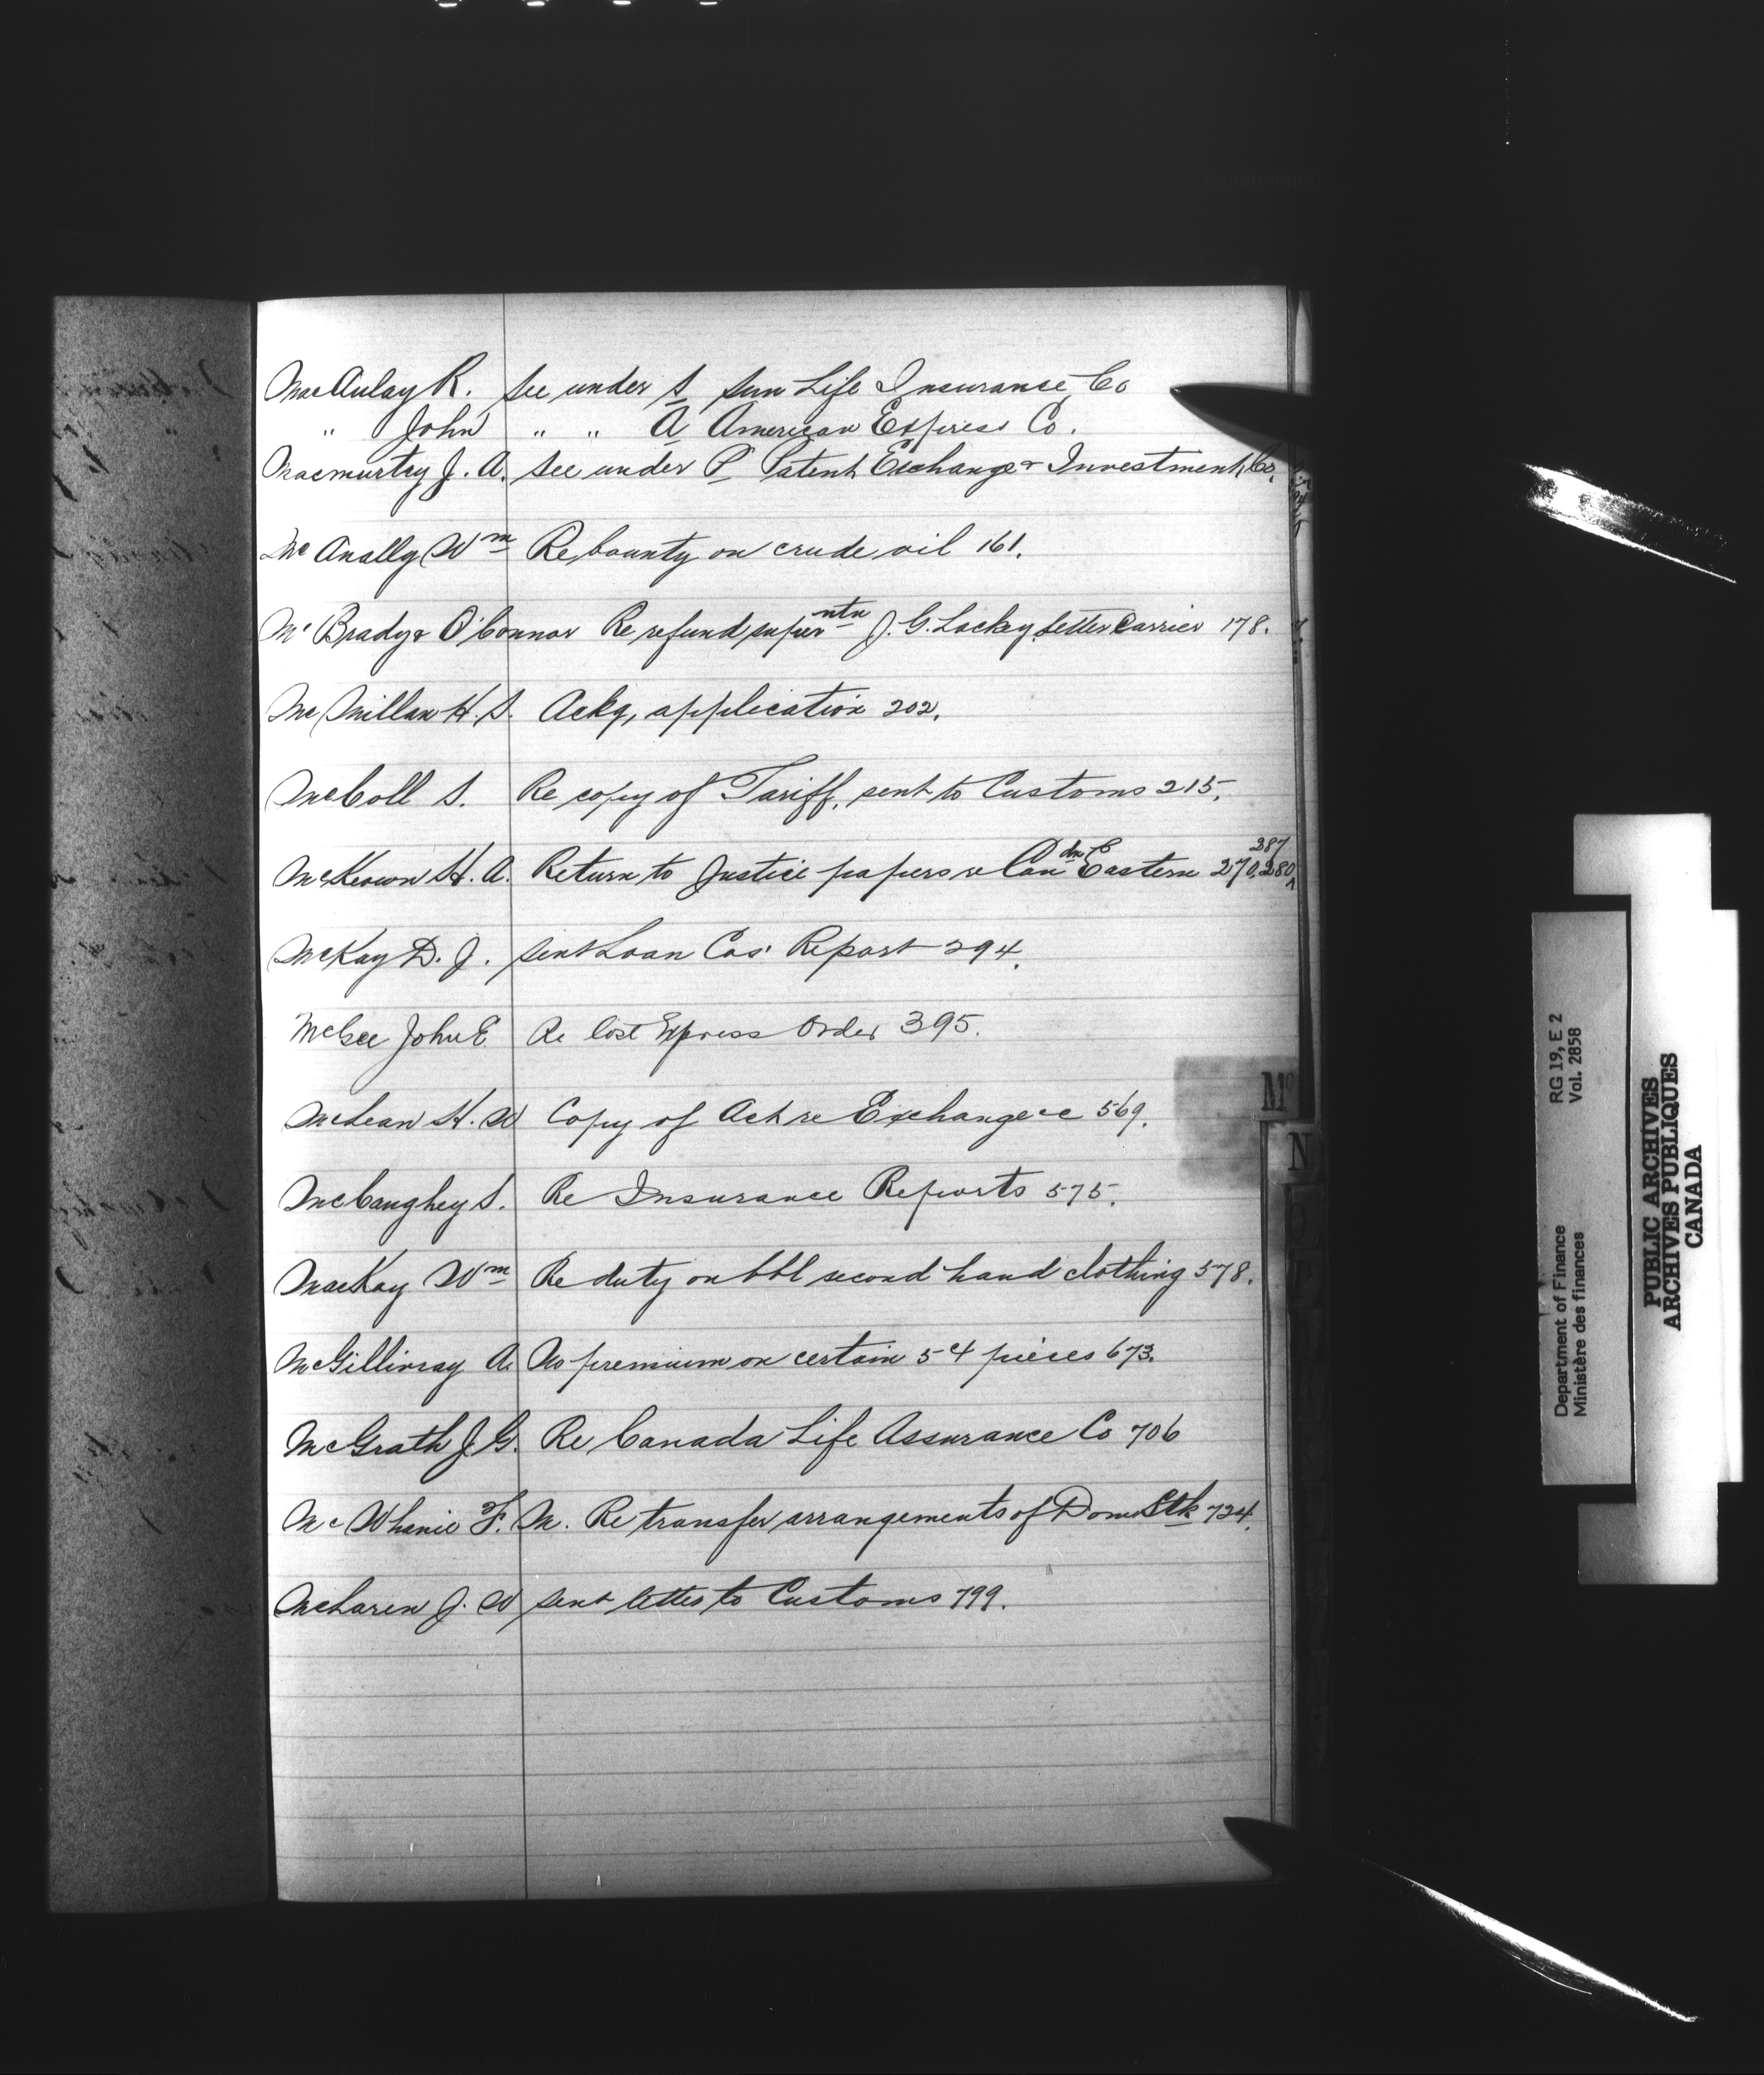 MacAulay R. See under S Sun Life Insurance Co
" John " " A American Express Co.
Macmurtry J. A. See under P Patent Exchange & Investment Co.
Mc Anally Wm Re bounty on crude oil 161.
Mc Brady & O'Connor Re refund superntn J. G. Lackey Letter Carrier 178.
McMillan H. S. Ackg, application 202.
McColl S. Re copy of Tariff, sent to Customs 215.
287
McKeown H. A. Return to Justice papers re Can dn Eastern 270, 280
McKay D. J. Sent Loan Cos' Report 294.
McGee John E Re lost Express Order 395.
McLean H. W Copy of Act re Exchange &c 569.
McCaughey S. Re Insurance Reports 575.
MacKay Wm Re duty on bbl second hand clothing 578.
McGillivray A. No premium on certain 5¢ pieces 673.
McGrath J. G. Re Canada Life Assurance Co 706
McWhinie F. M. Re transfer arrangements of Dom Stk 724.
McLaren J. W sent letter to Customs 799.
Mc
N
RG 19, E 2
Vol. 2858
Department of Finance
Ministère des finances
PUBLIC ARCHIVES
ARCHIVES PUBLIQUES
CANADA